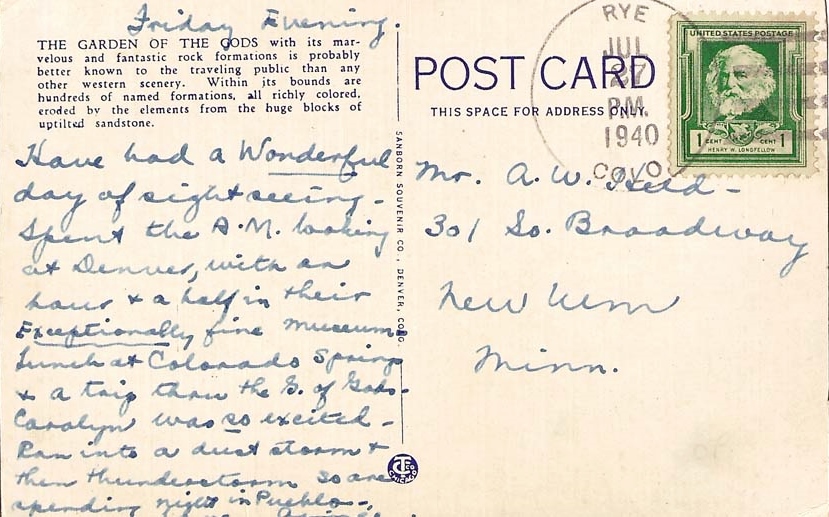 Friday Evening.
THE GARDEN OF THE GODS with its mar-
velous and fantastic rock formations is probably
better known to the traveling public than any
other western scenery. Within its bounds are
hundreds of named formations, all richly colored,
eroded by the elements from the huge blocks of
uptilted sandstone.
Have had a Wonderful
day of sight seeing -
Spent the A.M. looking
at Denver, with an
hour & a half in their
Exceptionally fine museum.
Lunch at Colorado Springs
& a trip thru the G. of Gods -
Carolyn was so excited -
Ran into a dust storm &
then thunderstorm so are
spending night in Pueblo -
SANBORN SOUVENIR CO., DENVER, COLO.
CT CO
CHICAGO
POST CARD
THIS SPACE FOR ADDRESS ONLY.
RYE
JUL
27
P.M.
1940
COLO.
UNITED STATES POSTAGE
1 CENT CENT 1
HENRY W. LONGFELLOW
Mr. A. W.
301 So. Broadway
New Ulm
Minn.